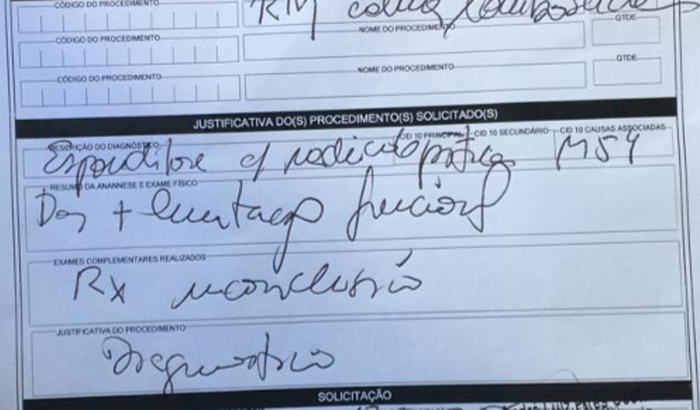 CÓDIGO DO PROCEDIMENTO
RM coluna lombossacra
NOME DO PROCEDIMENTO
QTDE
CÓDIGO DO PROCEDIMENTO
NOME DO PROCEDIMENTO
QTDE
CÓDIGO DO PROCEDIMENTO
JUSTIFICATIVA DO(S) PROCEDIMENTO(S) SOLICITADO(S)
DESCRIÇÃO DO DIAGNÓSTICO
CID 10 PRINCIPAL
CID 10 SECUNDÁRIO
CID 10 CAUSAS ASSOCIADAS
Espondilose c/ radiculopatia M54
RESUMO DA ANAMNESE E EXAME FÍSICO
Dor + limitação funcional
EXAMES COMPLEMENTARES REALIZADOS
Rx inconclusivo
JUSTIFICATIVA DO PROCEDIMENTO
Diagnóstico
SOLICITAÇÃO